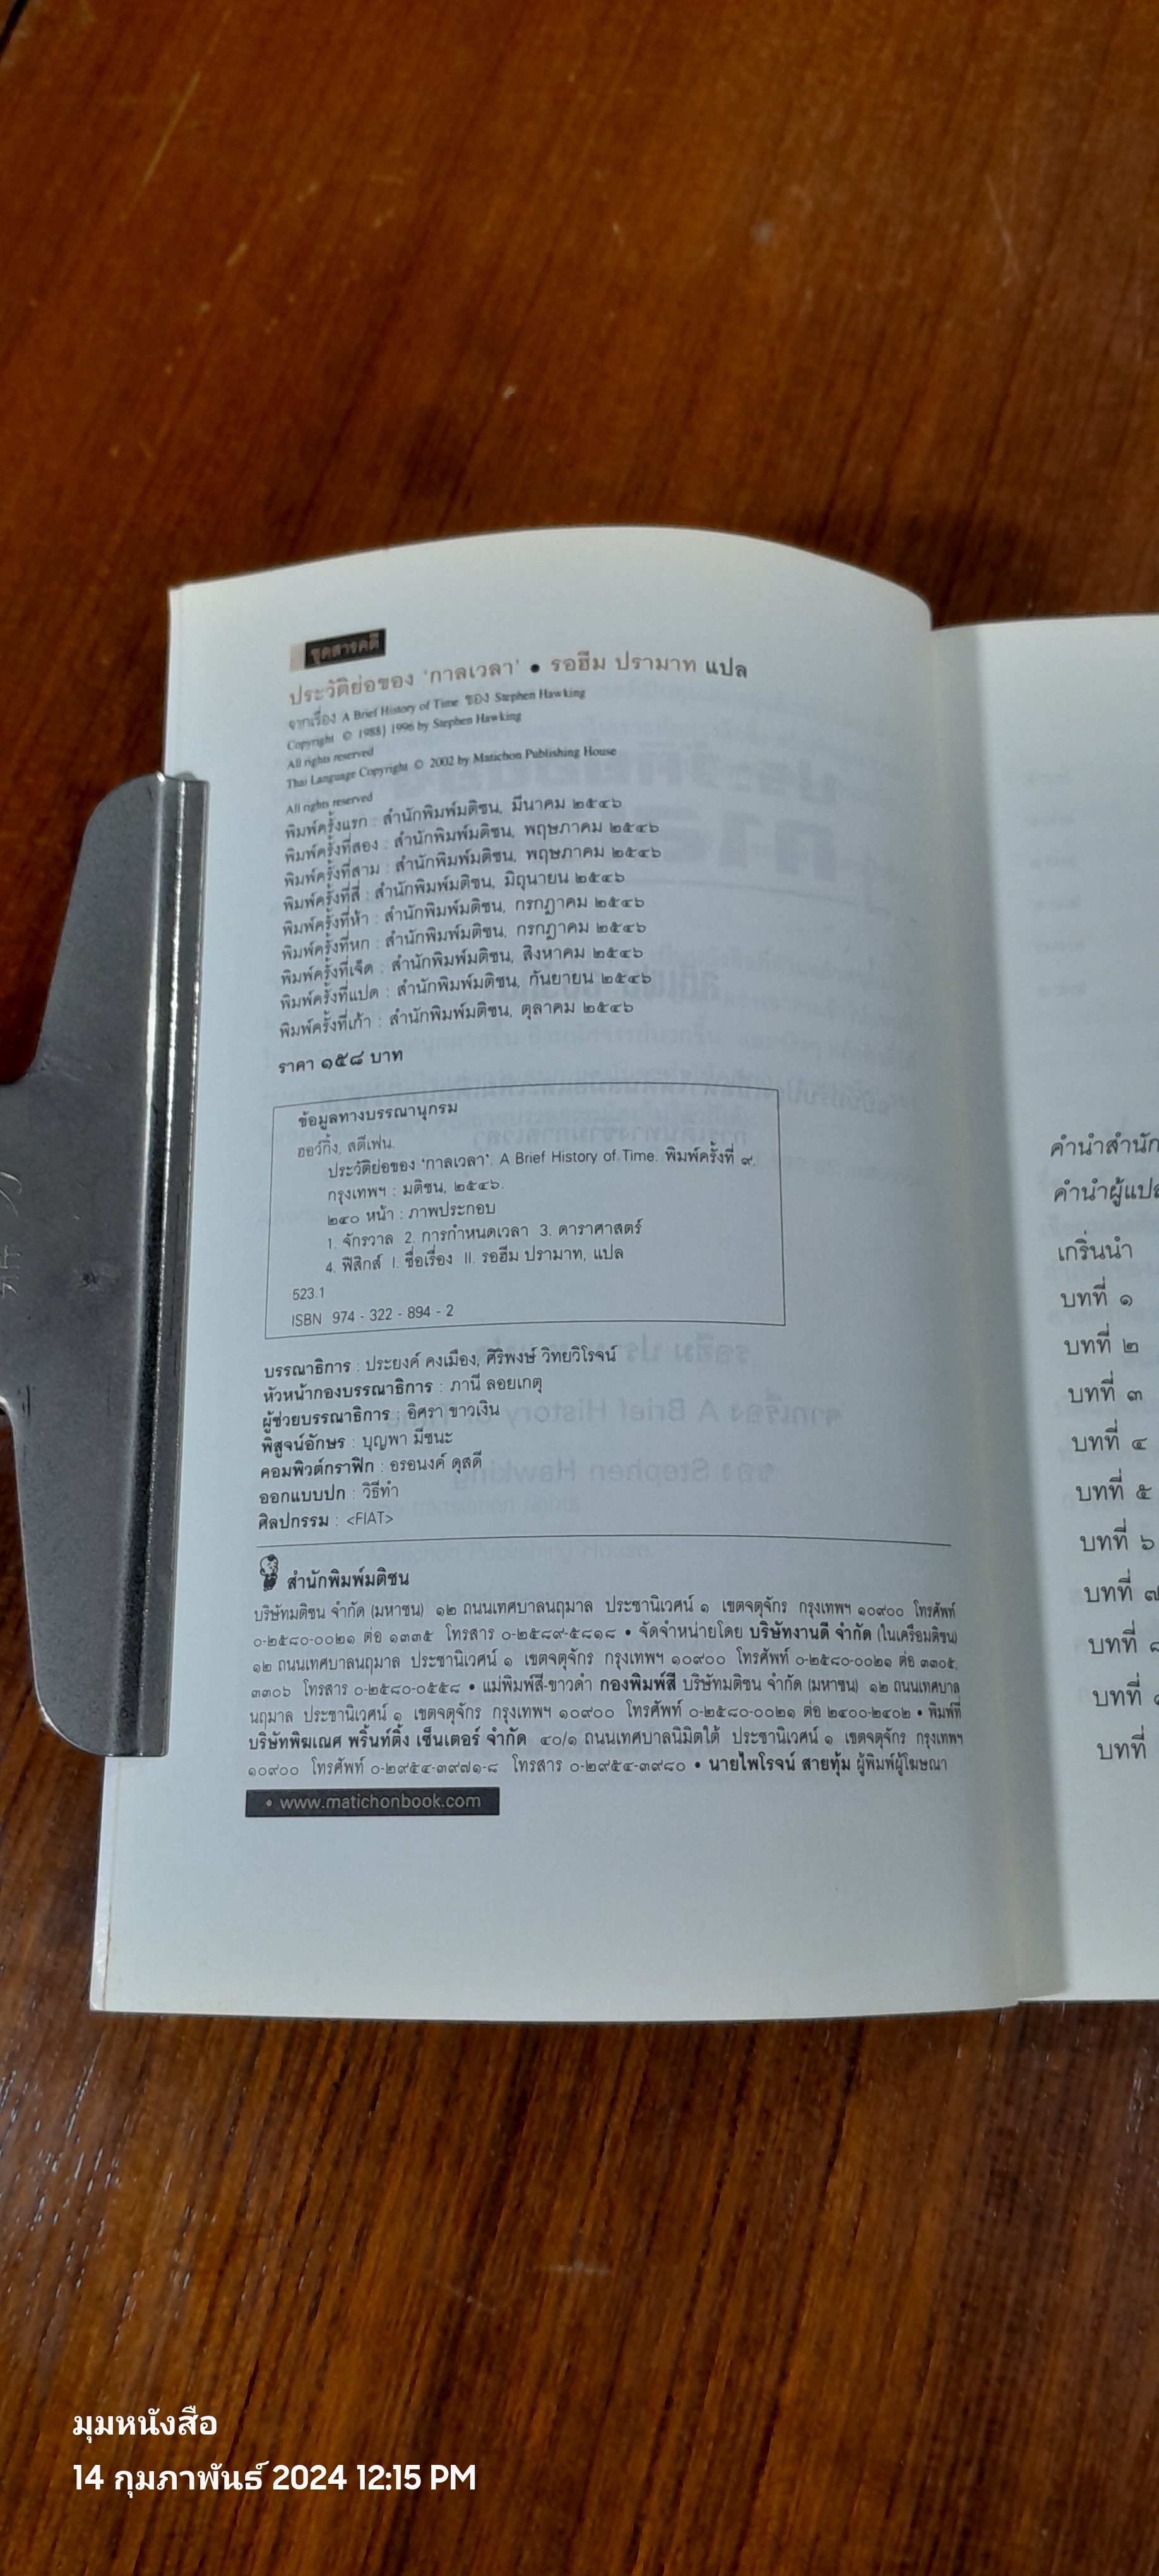 ชุดสารคดี
ประวัติย่อของ 'กาลเวลา' ● รอฮีม ปรามาท แปล
จากเรื่อง A Brief History of Time ของ Stephen Hawking
Copyright © 1988, 1996 by Stephen Hawking
All rights reserved
Thai Language Copyright © 2002 by Matichon Publishing House
All rights reserved
พิมพ์ครั้งแรก : สำนักพิมพ์มติชน, มีนาคม ๒๕๔๖
พิมพ์ครั้งที่สอง : สำนักพิมพ์มติชน, พฤษภาคม ๒๕๔๖
พิมพ์ครั้งที่สาม : สำนักพิมพ์มติชน, พฤษภาคม ๒๕๔๖
พิมพ์ครั้งที่สี่ : สำนักพิมพ์มติชน, มิถุนายน ๒๕๔๖
พิมพ์ครั้งที่ห้า : สำนักพิมพ์มติชน, กรกฎาคม ๒๕๔๖
พิมพ์ครั้งที่หก : สำนักพิมพ์มติชน, กรกฎาคม ๒๕๔๖
พิมพ์ครั้งที่เจ็ด : สำนักพิมพ์มติชน, สิงหาคม ๒๕๔๖
พิมพ์ครั้งที่แปด : สำนักพิมพ์มติชน, กันยายน ๒๕๔๖
พิมพ์ครั้งที่เก้า : สำนักพิมพ์มติชน, ตุลาคม ๒๕๔๖
ราคา ๑๕๘ บาท
ข้อมูลทางบรรณานุกรม
ฮอว์กิ้ง, สตีเฟน.
ประวัติย่อของ 'กาลเวลา'. A Brief History of Time. พิมพ์ครั้งที่ ๙.
กรุงเทพฯ : มติชน, ๒๕๔๖.
๒๔๐ หน้า : ภาพประกอบ
1. จักรวาล 2. การกำหนดเวลา 3. ดาราศาสตร์
4. ฟิสิกส์ I. ชื่อเรื่อง II. รอฮีม ปรามาท, แปล
523.1
ISBN 974 - 322 - 894 - 2
บรรณาธิการ : ประยงค์ คงเมือง, ศิริพงษ์ วิทยวิโรจน์
หัวหน้ากองบรรณาธิการ : ภานี ลอยเกตุ
ผู้ช่วยบรรณาธิการ : อิศรา ขาวเงิน
พิสูจน์อักษร : บุญพา มีชนะ
คอมพิวต์กราฟิก : อรอนงค์ ดุสดี
ออกแบบปก : วิธีทำ
ศิลปกรรม : <FIAT>
สำนักพิมพ์มติชน
บริษัทมติชน จำกัด (มหาชน) ๑๒ ถนนเทศบาลนฤมาล ประชานิเวศน์ ๑ เขตจตุจักร กรุงเทพฯ ๑๐๙๐๐ โทรศัพท์
๐-๒๕๘๐-๐๐๒๑ ต่อ ๑๓๓๕ โทรสาร ๐-๒๕๘๙-๕๘๑๘ • จัดจำหน่ายโดย บริษัทงานดี จำกัด (ในเครือมติชน)
๑๒ ถนนเทศบาลนฤมาล ประชานิเวศน์ ๑ เขตจตุจักร กรุงเทพฯ ๑๐๙๐๐ โทรศัพท์ ๐-๒๕๘๐-๐๐๒๑ ต่อ ๓๓๐๕,
๓๓๐๖ โทรสาร ๐-๒๕๘๐-๐๕๕๘ • แม่พิมพ์สี-ขาวดำ กองพิมพ์สี บริษัทมติชน จำกัด (มหาชน) ๑๒ ถนนเทศบาล
นฤมาล ประชานิเวศน์ ๑ เขตจตุจักร กรุงเทพฯ ๑๐๙๐๐ โทรศัพท์ ๐-๒๕๘๐-๐๐๒๑ ต่อ ๒๔๐๐-๒๔๐๒ • พิมพ์ที่
บริษัทพิฆเณศ พริ้นท์ติ้ง เซ็นเตอร์ จำกัด ๔๐/๑ ถนนเทศบาลนิมิตใต้ ประชานิเวศน์ ๑ เขตจตุจักร กรุงเทพฯ
๑๐๙๐๐ โทรศัพท์ ๐-๒๙๕๔-๓๙๗๑-๘ โทรสาร ๐-๒๙๕๔-๓๙๘๐ • นายไพโรจน์ สายทุ้ม ผู้พิมพ์ผู้โฆษณา
• www.matichonbook.com
คำนำสำนัก
คำนำผู้แปล
เกริ่นนำ
บทที่ ๑
บทที่ ๒
บทที่ ๓
บทที่ ๔
บทที่ ๕
บทที่ ๖
บทที่ ๗
บทที่ ๘
บทที่
บทที่
มุมหนังสือ
14 กุมภาพันธ์ 2024 12:15 PM